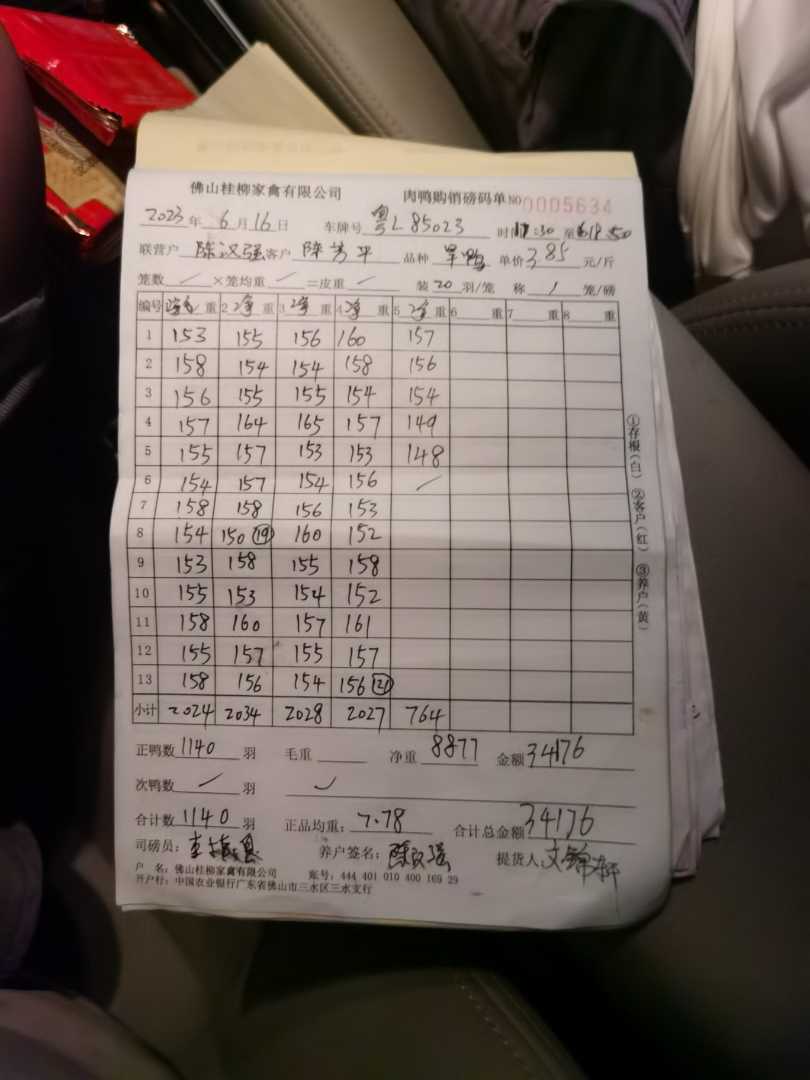 佛山桂柳家禽有限公司 肉鸭购销磅码单 NO 0005634
2023年 6月 16日 车牌号 粤L 85023 时 :30 至 18:50
联营户 陈汉强 客户 陈芳平 品种 旱鸭 单价 3.85 元/斤
笼数 / ×笼均重 / =皮重 / 装 20 羽/笼 称 1 笼/磅
编号 重 2 净 重 3 净 重 4 净 重 5 净 重 6 重 7 重 8 重
1 153 155 156 160 157
2 158 154 154 158 156
3 156 155 155 154 154
4 157 164 165 157 149
5 155 157 153 153 148
6 154 157 154 156 /
7 158 158 156 153
8 154 150 ⑲ 160 152
9 153 158 155 158
10 155 153 154 152
11 158 160 157 161
12 155 157 155 157
13 158 156 154 156 ㉑
小计 2024 2034 2028 2027 764
正鸭数 1140 羽 毛重 净重 8877 金额 34176
次鸭数 / 羽
合计数 1140 羽 正品均重: 7.78 合计总金额 34176
司磅员: 养户签名: 陈汉强 提货人 文锦轩
户 名: 佛山桂柳家禽有限公司 账号: 444 401 010 400 169 29
开户行: 中国农业银行广东省佛山市三水区三水支行
①存根(白) ②客户(红) ③养户(黄)